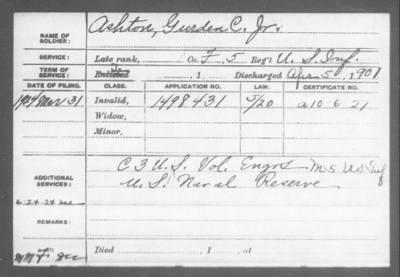 NAME OF SOLDIER: Ashton, Gurden C. Jr.
SERVICE: Late rank, Co. F. 5 Reg't U. S. Inf.
TERM OF SERVICE: Enlisted , 1 . Discharged Apr 5 , 1901
DATE OF FILING. CLASS. APPLICATION NO. LAW. CERTIFICATE NO.
Mar 31 Invalid, 1498431 a 10 6 21
Widow,
Minor,
ADDITIONAL SERVICES: C 3 U.S. Vol. Engrs M-5 U.S. Inf
U.S. Naval Reserve
6-24-24
REMARKS:
Died , 1 , at